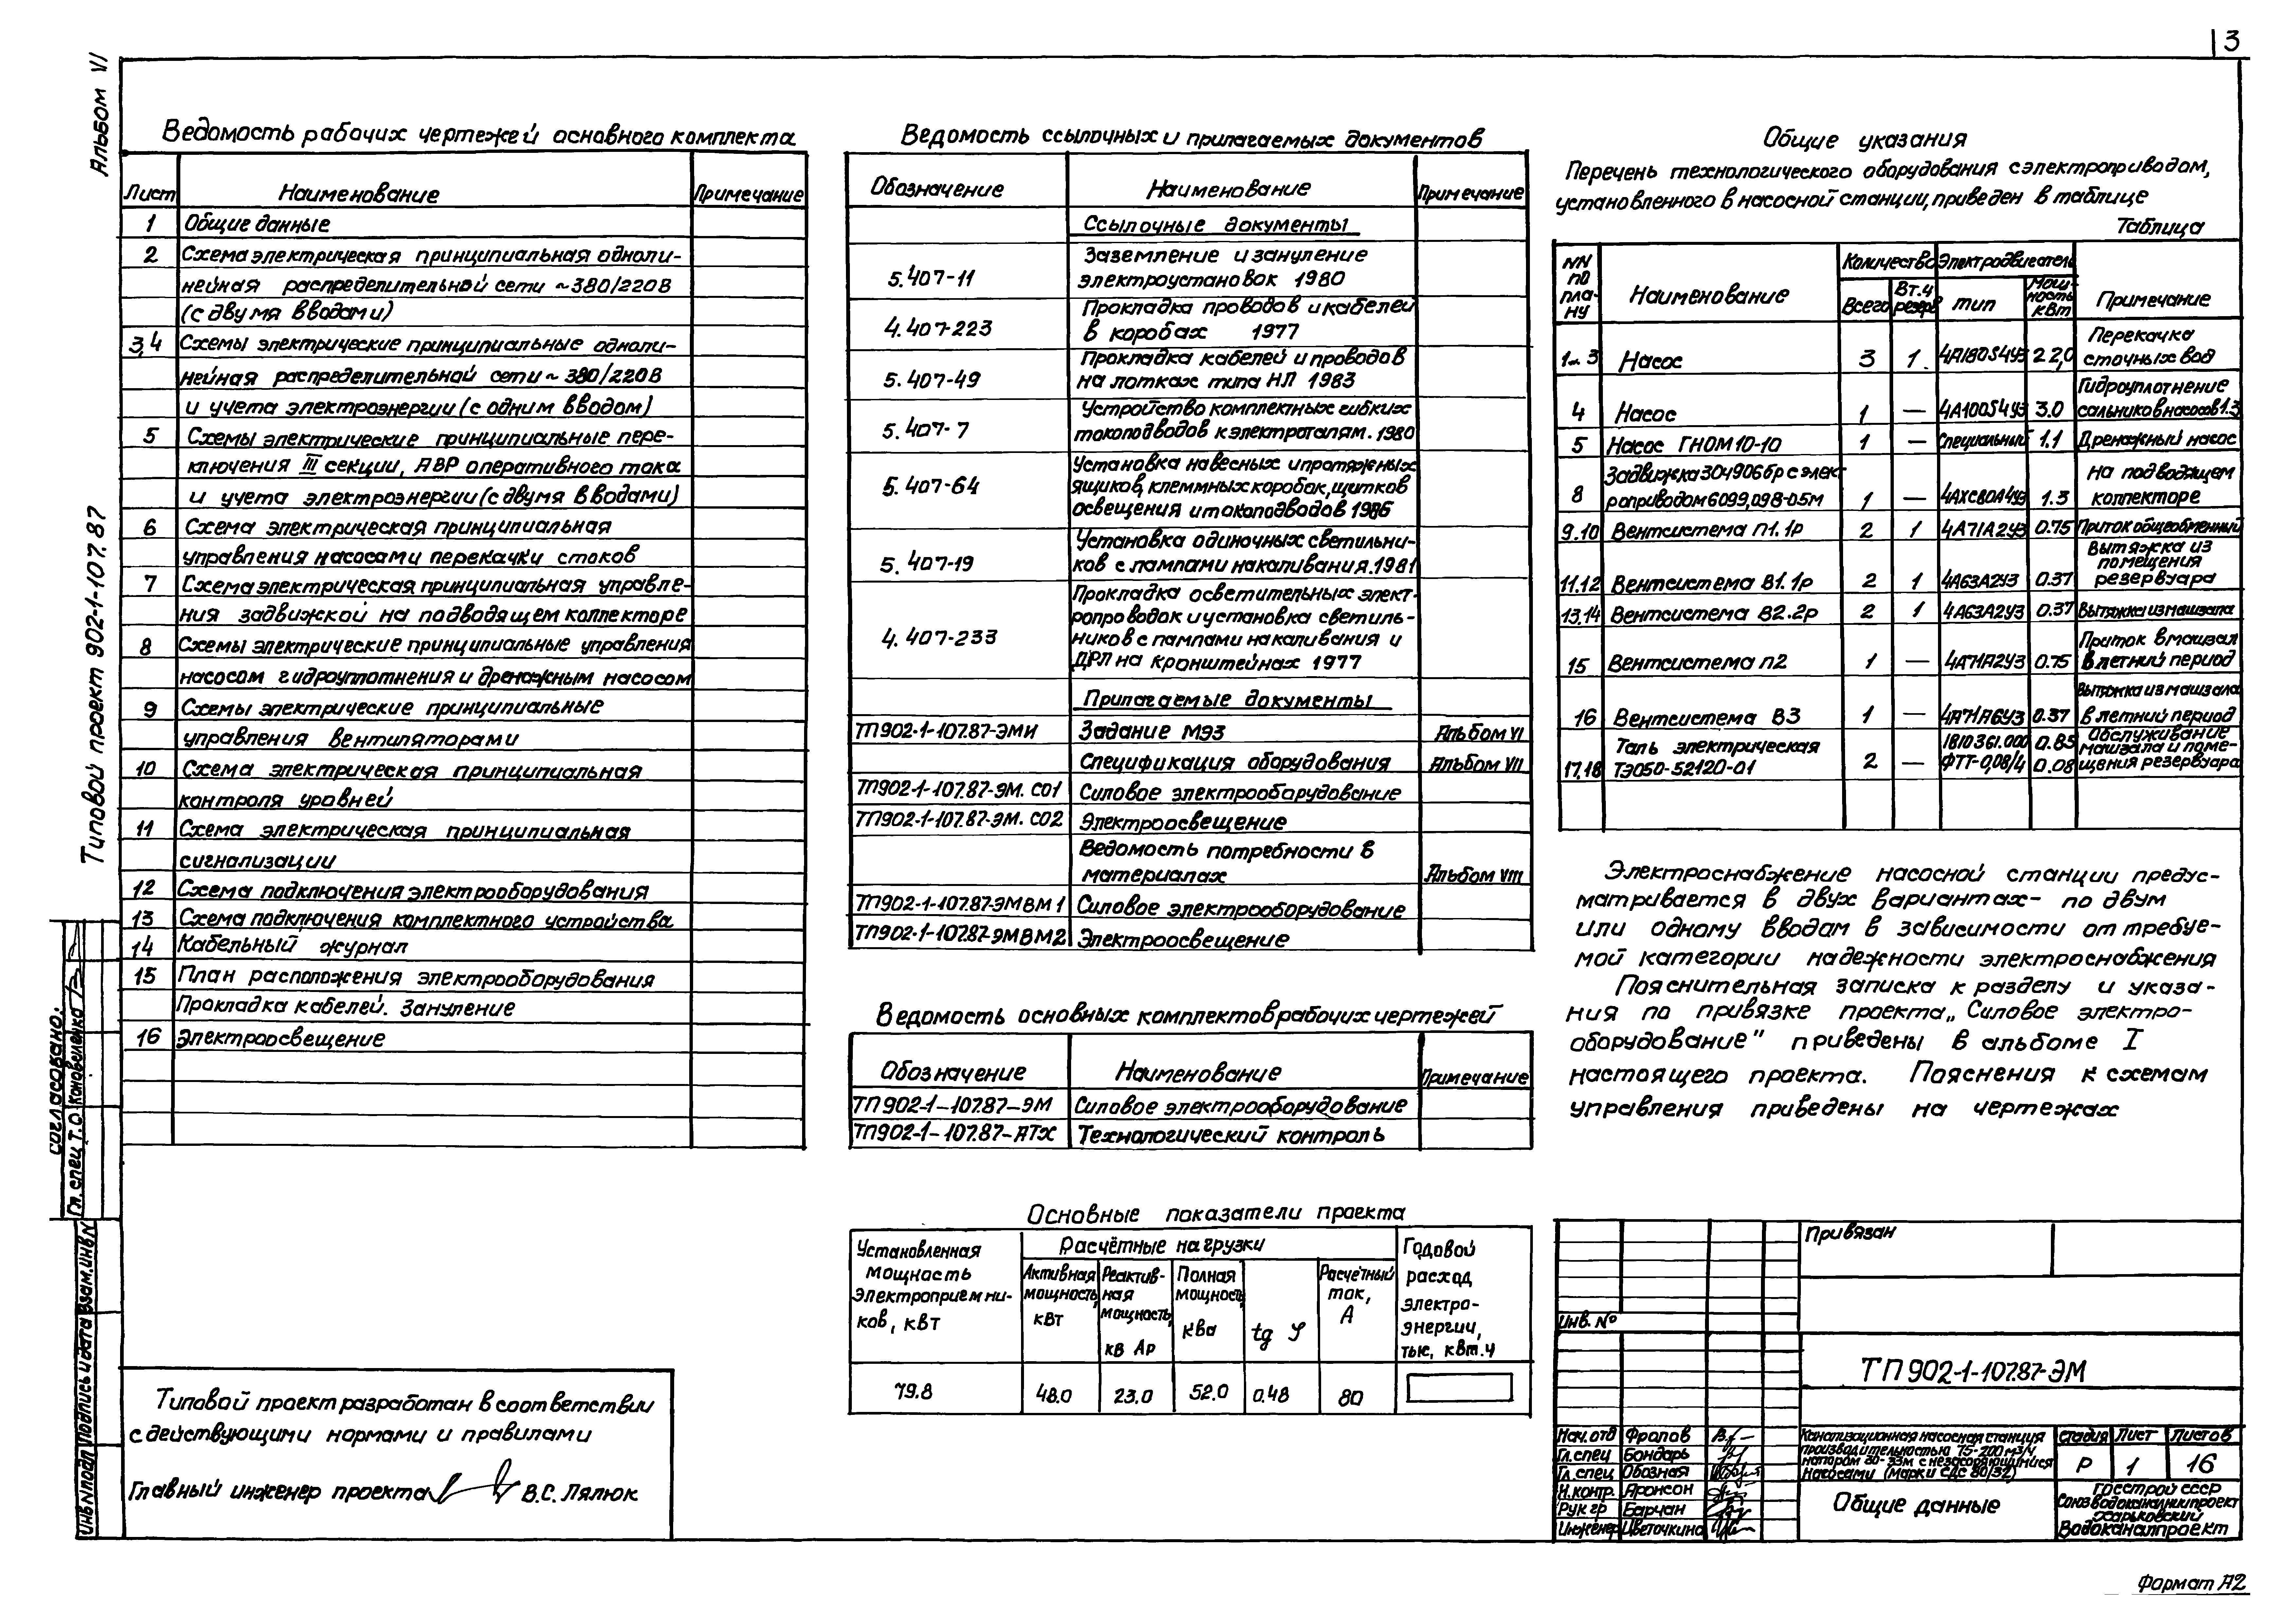 3
Альбом VI
Типовой проект 902-1-107.87
Ведомость рабочих чертежей основного комплекта
Лист Наименование Примечание
1 Общие данные
2 Схема электрическая принципиальная одноли-
нейная распределительной сети ~380/220В
(с двумя вводами)
3,4 Схемы электрические принципиальные одноли-
нейная распределительной сети ~ 380/220В
и учета электроэнергии (с одним вводом)
5 Схемы электрические принципиальные пере-
ключения III секции, АВР оперативного тока
и учета электроэнергии (с двумя вводами)
6 Схема электрическая принципиальная
управления насосами перекачки стоков
7 Схема электрическая принципиальная управле-
ния задвижкой на подводящем коллекторе
8 Схемы электрические принципиальные управления
насосом гидроуплотнения и дренажным насосом
9 Схемы электрические принципиальные
управления вентиляторами
10 Схема электрическая принципиальная
контроля уровней
11 Схема электрическая принципиальная
сигнализации
12 Схема подключения электрооборудования
13 Схема подключения комплектного устройства
14 Кабельный журнал
15 План расположения электрооборудования
Прокладка кабелей. Зануление
16 Электроосвещение
Типовой проект разработан в соответствии
с действующими нормами и правилами
Главный инженер проекта В.С. Лялюк
Согласовано:
Гл. спец Т.О. Коноваленко
Инв N подл Подпись и дата Взам. инв N
Ведомость ссылочных и прилагаемых документов
Обозначение Наименование Примечание
Ссылочные документы
5.407-11 Заземление и зануление
электроустановок 1980
4.407-223 Прокладка проводов и кабелей
в коробах 1977
5.407-49 Прокладка кабелей и проводов
на лотках типа НЛ 1983
5.407-7 Устройство комплектных гибких
токоподводов к электроталям. 1980
5.407-64 Установка навесных и протяжных
ящиков, клеммных коробок, щитков
освещения и токоподводов 1986
5.407-19 Установка одиночных светильни-
ков с лампами накаливания. 1981
4.407-233 Прокладка осветительных элект-
ропроводок и установка светиль-
ников с лампами накаливания и
ДРЛ на кронштейнах 1977
Прилагаемые документы
ТП902-1-107.87-ЭМИ Задание МЭЗ Альбом VI
Спецификация оборудования Альбом VII
ТП902-1-107.87-ЭМ. СО1 Силовое электрооборудование
ТП902-1-107.87-ЭМ. СО2 Электроосвещение
Ведомость потребности в
материалах Альбом VIII
ТП902-1-107.87-ЭМВМ1 Силовое электрооборудование
ТП902-1-107.87-ЭМВМ2 Электроосвещение
Ведомость основных комплектов рабочих чертежей
Обозначение Наименование Примечание
ТП902-1-107.87-ЭМ Силовое электрооборудование
ТП902-1-107.87-АТХ Технологический контроль
Основные показатели проекта
Установленная мощность электроприемни-ков, кВт Расчётные нагрузки Годовой расход электро-энергии, тыс, квт.ч
Активная мощность, кВт Реактив-ная мощность, кв Ар Полная мощность, ква tg φ Расчётный ток, А
79.8 48.0 23.0 52.0 0.48 80
Общие указания
Перечень технологического оборудования с электроприводом,
установленного в насосной станции, приведен в таблице
Таблица
NN по пла-ну Наименование Количество Электродвигатель Примечание
Всего Вт.ч резерв тип Мощ-ность кВт
1...3 Насос 3 1 4А180S4У3 22,0 Перекачка сточных вод
4 Насос 1 — 4А100S4У3 3.0 Гидроуплотнение сальников насосов 1.3
5 Насос ГНОМ 10-10 1 — Специальный 1.1 Дренажный насос
8 Задвижка 30ч906бр с элект-
роприводом 6099,098-05м 1 — 4АХС80А4У3 1.3 На подводящем коллекторе
9.10 Вентсистема П1.1р 2 1 4А71А2У3 0.75 Приток общеобменный
11.12 Вентсистема В1.1р 2 1 4А63А2У3 0.37 Вытяжка из помещения резервуара
13.14 Вентсистема В2.2р 2 1 4А63А2У3 0.37 Вытяжка из машзала
15 Вентсистема П2 1 — 4А71А2У3 0.75 Приток в машзал в летний период
16 Вентсистема В3 1 — 4А71А6У3 0.37 Вытяжка из машзала в летний период
17,18 Таль электрическая
ТЭ050-52120-01 2 — 1810361.000 0.85 ФТТ-0,08/4 0.08 Обслуживание машзала и поме-щения резервуара
Электроснабжение насосной станции предус-
матривается в двух вариантах- по двум
или одному вводам в зависимости от требуе-
мой категории надежности электроснабжения
Пояснительная записка к разделу и указа-
ния по привязке проекта „Силовое электро-
оборудование" приведены в альбоме I
настоящего проекта. Пояснения к схемам
управления приведены на чертежах
Привязан
Инв. №
ТП 902-1-107.87-ЭМ
Нач. отд Фролов
Гл. спец Бондарь
Гл. спец Обозная
Н. контр. Аронсон
Рук гр Барчан
Инженер Цветочкина
Канализационная насосная станция
производительностью 75-200 м³/ч
напором 30-33м с незасоряющимися
насосами (марки СДС 80/32)
Стадия Лист Листов
Р 1 16
Общие данные
Госстрой СССР
Союзводоканалниипроект
Харьковский
Водоканалпроект
Формат А2